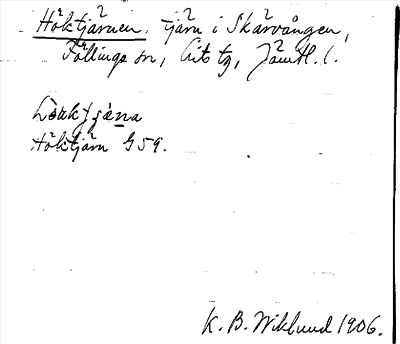 Höktjärnen, tjärn i Skärvången,
Föllinge sn, Lits tg, Jämtl. l.
Höktjärn G 59.
K. B. Wiklund 1906.